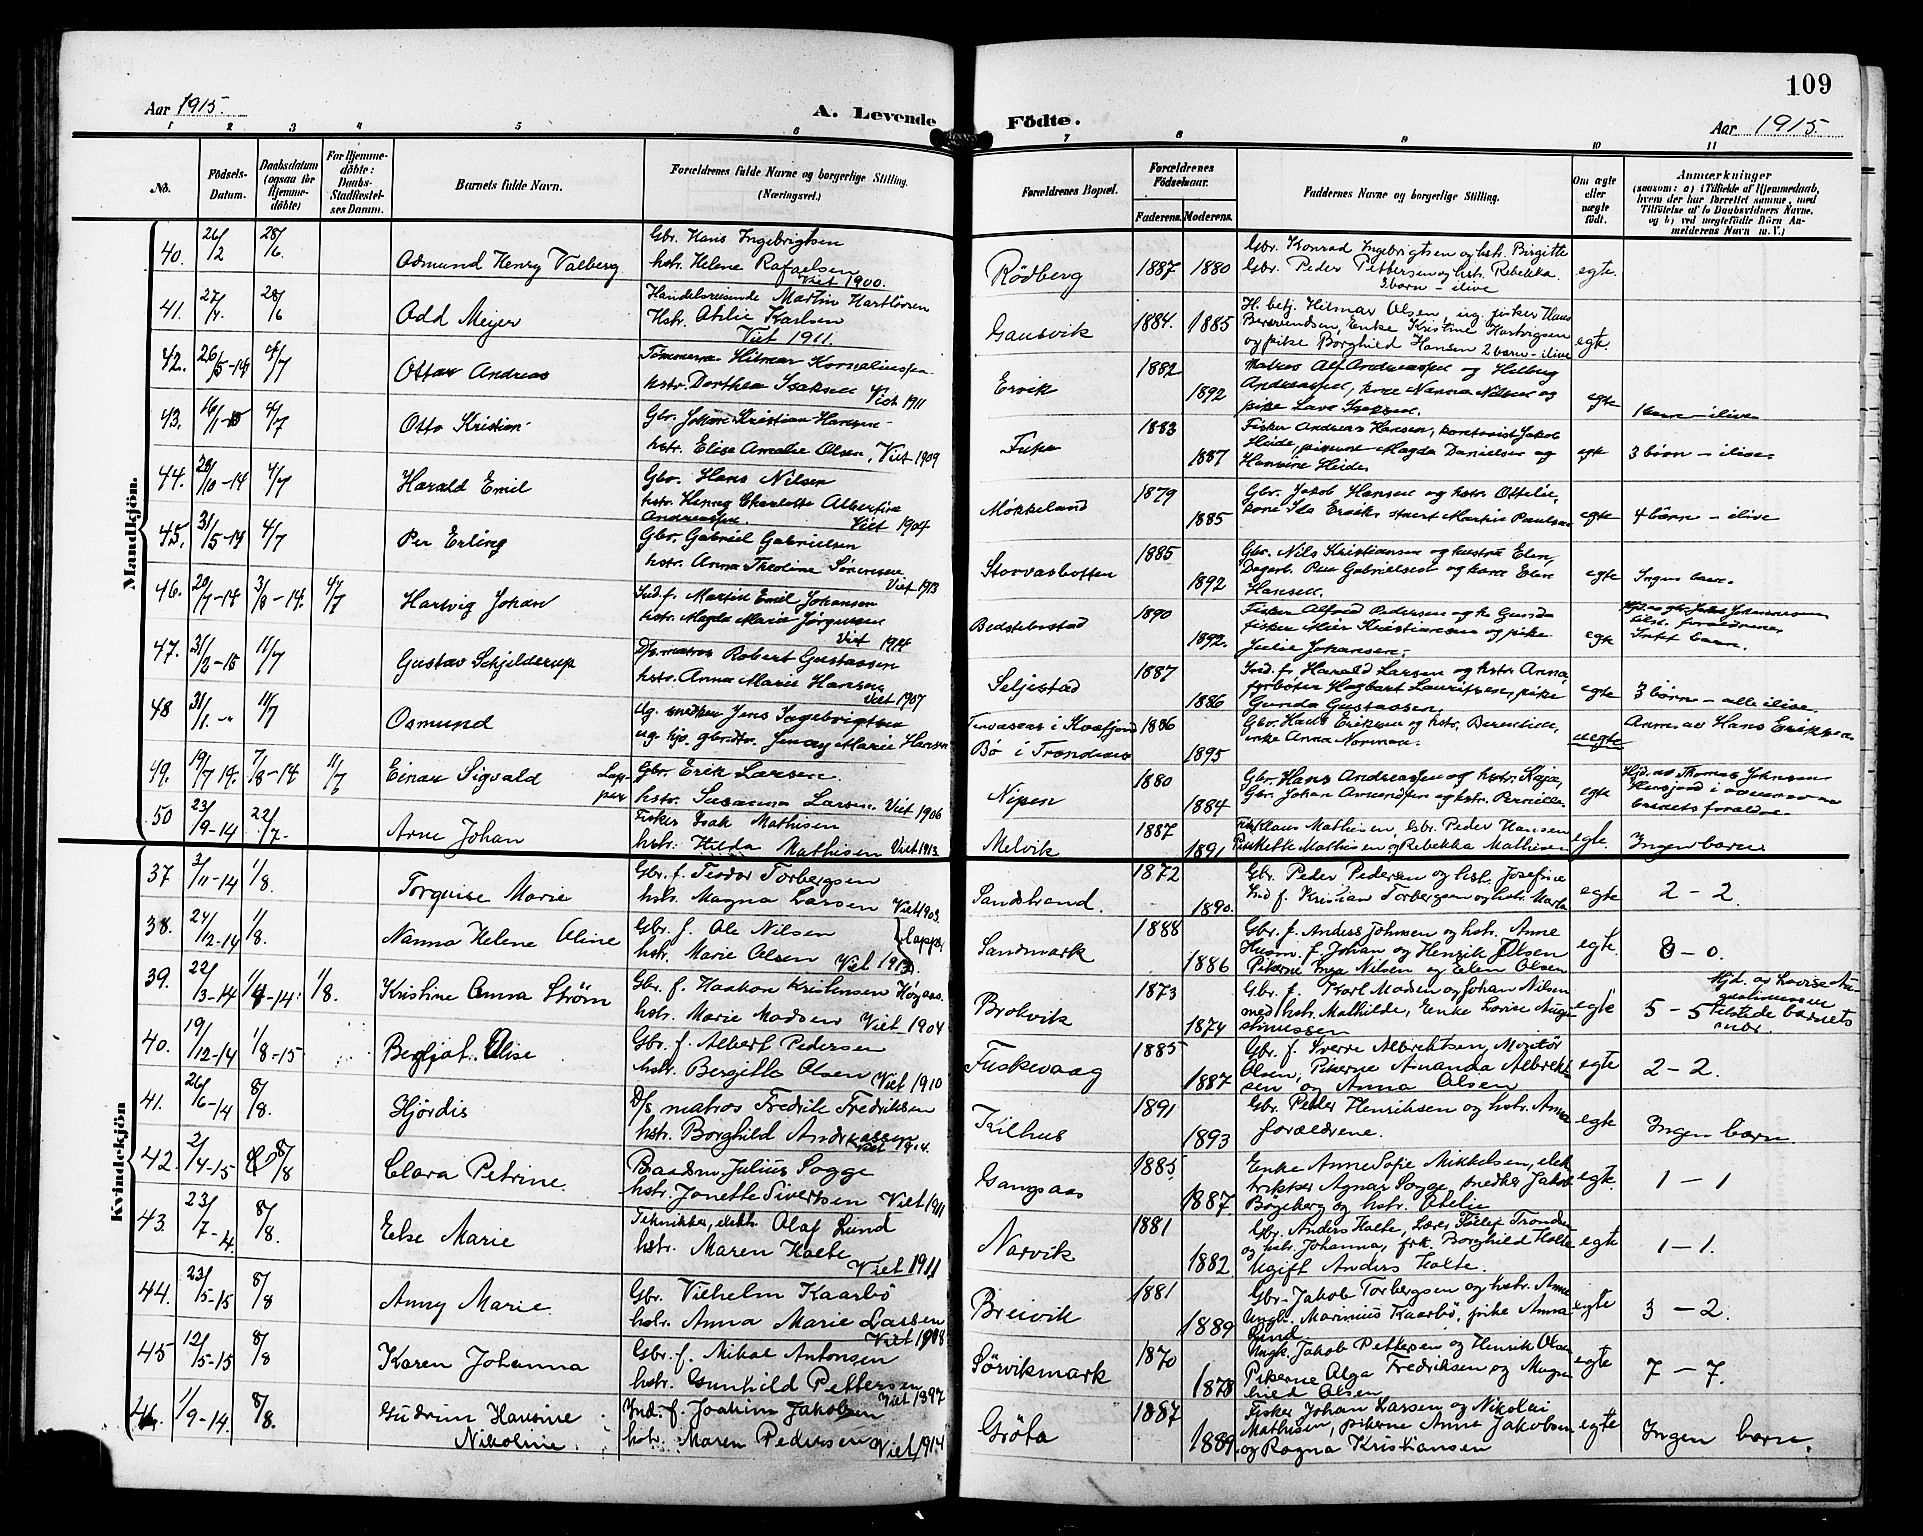 109
Aar 1915. A. Levende Födte. Aar 1915.
1 2 3 4 5 6 7 8 9 10 11
No. Födsels-Datum. Daabsdatum (ogsaa for Hjemme-döbte) For Hjemme-döbte: Daabs-Stadfæstel-ses Datum. Barnets fulde Navn. Forældrenes fulde Navne og borgerlige Stilling. (Næringsvei.) Forældrenes Bopæl. Forældrenes Födselsaar. Faderens. Moderens. Faddernes Navne og borgerlige Stilling. Om ægte eller uægte födt. Anmærkninger (saasom: a) i Tilfælde af Hjemmedaab, hvem der har forrettet samme, med Tilföielse af to Daabsvidners Navne, og b) ved uægtefödte Börn An-melderens Navn m. V.)
Mandkjön.
40. 26/2 28/6. Odmund Henry Valberg Gbr. Hans Ingebrigtsen
hstr. Helene Rafaelsen Viet 1900. Rödberg 1887 1880 Gbr. Konrad Ingebrigtsen og hst. Birgitte
Gbr. Peder Pettersen og hstr. Rebekka egte.
2 barn - ilive
41. 27/4. 28/6 Odd Meyer Handelsreisende Martin Hartløvsen
Hstr. Otelie Karlsen
Viet 1911. Gausvik 1884. 1885 H. betj. Hilmar Olsen, ug. fisker Hans
Enke Kristine Hartvigsen
og pike Borghild Hansen 2 barn - ilive egte.
42. 26/5-14 4/7 Ottar Andreas Tømmerm. Hilmar Kornelinssen
hstr. Dorthea Isaksen Viet 1911 Ervik 1882 1892 Matros Alf Andreassen og Helberg
Andreassen, kone Nanna Nilsen og
pike Lava Isaksen. egte 1 barn - ilive
43. 16/1-15 4/7 Otto Kristian Gbr. Johan Kristian Hansen
hstr. Elise Amalie Olsen, Viet 1909 1883 1887 Fisker Andreas Hansen, kontorist Jakob
Heide, pikerne Magda Danielsen og
Hansine Heide egte 3 børn - ilive.
44. 28/10-14 4/7 Harald Emil Gbr. Hans Nilsen
hstr. Henny Charlotte Albertine
Andreassen. Viet 1904 Møkkeland 1879 1885 Gbr. Jakob Hansen og hstr. Ottelie,
kone Ida Ervik, stuert Martin Paulsen egte 4 børn - ilive
45. 31/5-14 4/7 Per Erling Gbr. Gabriel Gabrielsen
hstr. Anna Theoline Sørensen Viet 1913 Storvasbotten 1885 1892 Gbr. Nils Kristiansen og hustru Elen,
Dagarb. Peer Gabrielsen og kone Elen
Hansen. egte Ingen barn.
46. 20/7-14 3/8-14. 4/7 Hartvig Johan Ind.f. Martin Emil Johansen
hstr. Magda Marie Jørgensen
Viet 1914 Bedstebostad 1890 1892. Fisker Alfred Pedersen og h. Gunda
fisker Meier Kristiansen og pike
Julie Johansen. egte Hjd. av gbr. Johannessen
tilst. forældrene
Intet barn.
47. 31/2-15 11/7 Gustav Schjelderup D/s matros Robert Gustavsen
hstr. Anna Marie Hansen
Viet 1907 Seljestad 1887 1886 Ind. f. Harald Larsen og hstr. Anna,
fyrbøter Hagbart Lauritzen, pike
Gunda Gustavsen. egte 3 børn - alle ilive.
48 31/1 -" 11/7 Osmund ug. snedker Jens Ingebrigtsen
ug. hjv. gbrdtr. Jenny Marie Hansen i Kvæfjord
Bø i Trondenes 1886 1895 Gbr. Hans Eriksen og hstr. Berentide,
enke Anna Norman. uegte Anm. av Hans Eriksen
49. 19/7 14. 7/8-14 11/7 Einar Sigvald Lapper Gbr. Erik Larsen.
hstr. Susanna Larsen. Viet 1906 Nipen 1880 1884 Gbr. Hans Andreassen og hstr. Kaja,
Gbr. Johan Amundsen og hstr. Pernille. egte Hjd. av Thomas Johnsen
i overvær av
barnets forældre.
50 23/9-14 22/7. Arne Johan Fisker Isak Mathisen
hstr. Hilda Mathisen Viet 1913. Melvik 1887 1891 Klaus Mathisen, Gbr. Peder Hansen
Mette Mathisen og Rebekka Mathisen egte. Ingen barn
Kvindekjön
37 3/11-14 1/8. Torguise Marie Gbr. f. Teodor Torbergsen
hstr. Magna Larsen Viet 1903. Sandstrand. 1872 1890. Gbr. Peder Pedersen og hst. Josefine
Ind f. Kristian Torbergsen og hstr. Marta egte 2 - 2.
38. 24/12-14 1/8. Nanna Helene Oline Gbr. f. Ole Nilsen
hstr. Marie Olsen (lapper) Viet 1913. Sandmark 1888 1886 Gbr. f. Anders Johnsen og hstr. Anne
Husm. f. Johan og Henrik Olsen
Pikerne Inga Nilsen og Elen Olsen egte. 0 - 0.
39. 22/3-14 1/4-14. 1/8. Kristine Anna Strøm Gbr. f. Haakon Kristensen Høgaas
hstr. Marie Madsen Viet 1904 Brokvik 1873 1874 Gbr. f. Karl Madsen og Johan Nilsen
med hstr. Mathilde, Enke Lovise Augu-
stinussen egte 5 - 5 Hjd. av Lovise Au-
gustinussen
tilstede barnets
mor.
40. 19/12-14 1/8-15 Bergljot Elise Gbr. f. Albert Pedersen
hstr. Bergitte Olsen Viet 1910 Fuskevaag 1885 1887 Gbr. f. Sverre Albriktsen, Montør
Olsen, Pikerne Amanda Albrekt-
sen og Anna Olsen egte 2 - 2.
41. 26/6-14 8/8. Hjørdis D/s matros Fredrik Fredriksen
hstr. Borghild Andreassen
Viet 1914. Kilhus 1891 1893 Gbr. Peder Henriksen og hstr. Anna
forældrene. egte Ingen barn.
42. 2/4-15 8/8 Clara Petrine. Baadsm. Julius Sogge
hstr. Jonette Sivertsen Viet 1911 Gangsaas 1885 1887. Enke Anne Sofie Mikkelsen, elek-
triker Agnar Sogge, snedker Jakob
Bøgeberg og hstr. Otelie egte. 1 - 1
43. 23/7-4. 8/8. Else Marie Tekniker, elektr. Olaf Lund
hstr. Maren Holte
Viet 1911 Narvik 1881 1882. Gbr. Anders Holte, Lærer Tronden
og hstr. Johanna, frk. Borghild Holte
Ugift Anders Holte. egte 1 - 1.
44. 23/5-15 8/8 Anny Marie Gbr. Vilhelm Kaarbø
hstr. Anna Marie Larsen
Viet 1908 Breivik 1881 1889 Gbr. Jakob Torbergsen og hstr. Anne
Ungk. Marinius Kaarbø, pike Anna
Lund. egte 3 - 2.
45 12/5-15 8/8 Karen Johanna Gbr. f. Mikal Antonsen
hstr. Gunhild Pettersen
Viet 1897 Sörvikmark 1870 1878 Ungk. Jakob Pettersen og Henrik Olsen
Pikerne Olga Fredriksen og Magn-
hild Olsen egte 7 - 7.
46. 1/9-14. 8/8. Gudrun Hansine
Nikoline. Ind. f. Joakim Jakobsen
hstr. Maren Pedersen Viet 1914 Grøta 1887 1889. Fisker Johan Larsen og Nikolai
Mathisen, pikerne Anna Jakobsen
og Ragna Kristiansen egte Ingen barn.